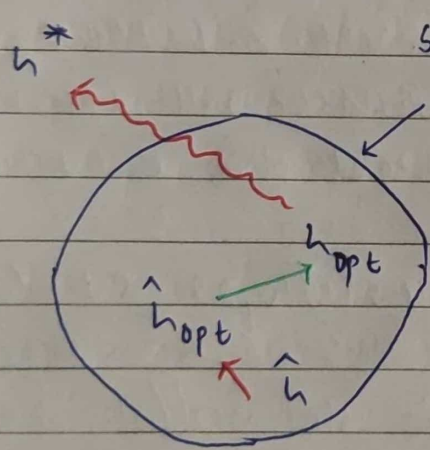 h*
h_opt
ĥ_opt
ĥ